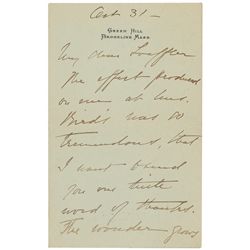 Oct 31 —
GREEN HILL
BROOKLINE MASS.
My dear Loeffler
The effect produced
on me at Mrs.
Bird's was so
tremendous, that
I want to send
you one little
word of thanks.
The wonder grows